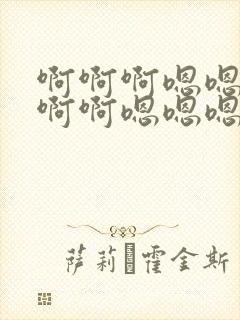 啊啊啊嗯嗯
啊啊嗯嗯嗯
萨莉霍金斯